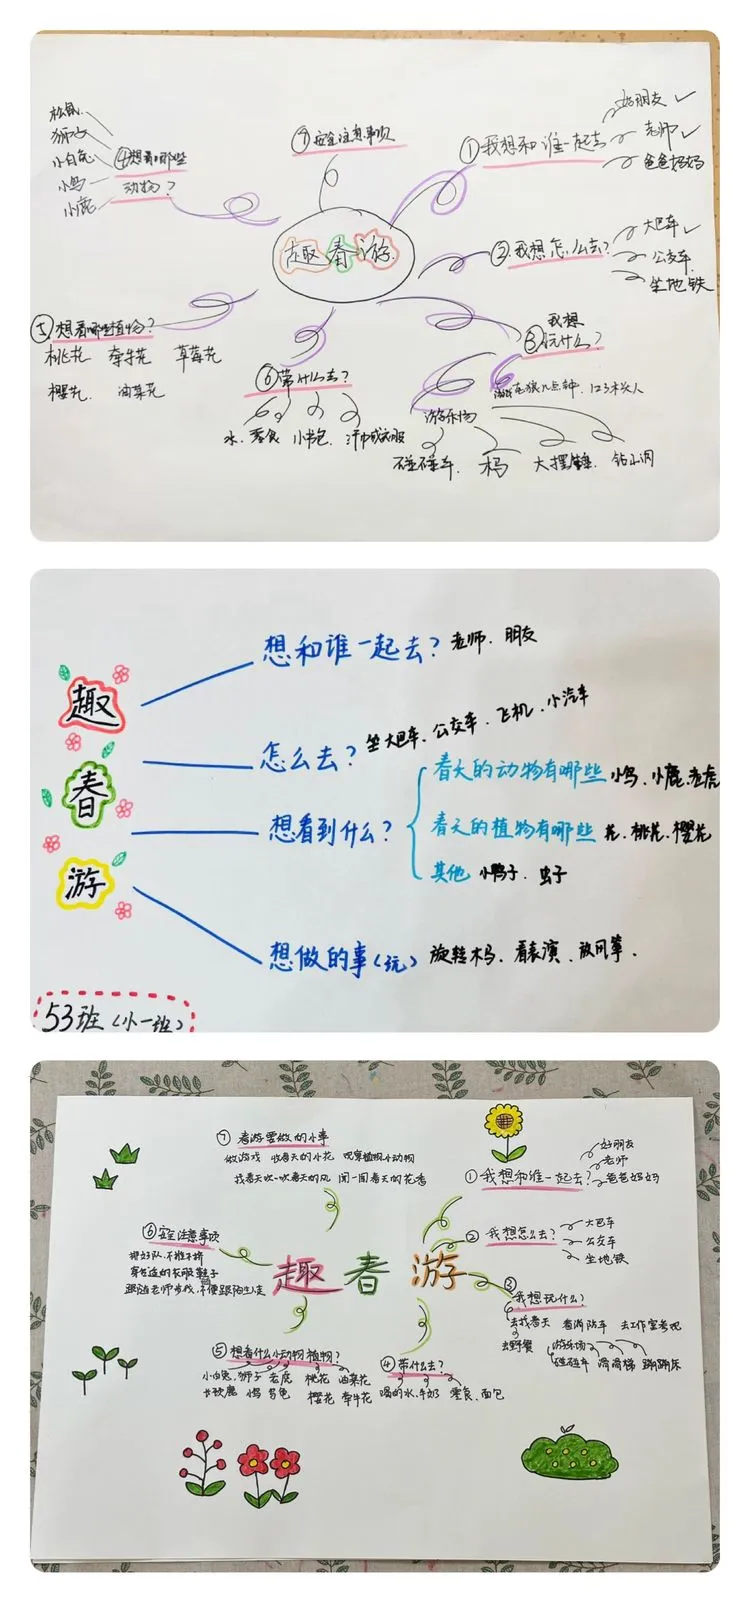 趣春游
①我想和谁一起去
好朋友✓
老师✓
爸爸妈妈
②我想怎么去?
大巴车✓
公交车
坐地铁
③我想
玩什么?
游戏老狼几点钟、123木头人
游乐场
碰碰车、木马 大摆锤 钻山洞
④想看哪些
动物?
松鼠
狮子
小白兔
小鸟
小鹿
⑤想看哪些植物?
桃花 牵牛花 草莓花
樱花 油菜花
⑥带什么去?
水、零食 小书包 汗巾或衣服
⑦安全注意事项
趣
春
游
想和谁一起去? 老师、朋友
怎么去? 坐大巴车、公交车、飞机、小汽车
想看到什么?
春天的动物有哪些 小鸟、小鹿、老虎
春天的植物有哪些 花、桃花、樱花
其他 小鸭子、虫子
想做的事(玩) 旋转木马、看表演、放风筝、
53班(小一班)
趣春游
①我想和谁一起去?
好朋友
老师
爸爸妈妈
②我想怎么去?
大巴车
公交车
坐地铁
③
我想玩什么?
去找春天 看消防车 去工作室参观
去野餐 游乐场
碰碰车 滑滑梯 蹦蹦床
④带什么去?
喝的水、牛奶 零食、面包
⑤想看什么小动物植物?
小白兔、狮子 老虎 桃花 油菜花
长颈鹿 小鸟 乌龟 樱花 牵牛花
⑥安全注意事项
排好队、不推不挤
穿合适的衣服鞋子
跟随老师步伐、不便跟陌生人走
⑦春游要做的小事
做游戏 收春天的小花 观察植物小动物
找春天吹一吹春天的风 闻一闻春天的花香